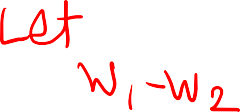 Let
W₁-W₂